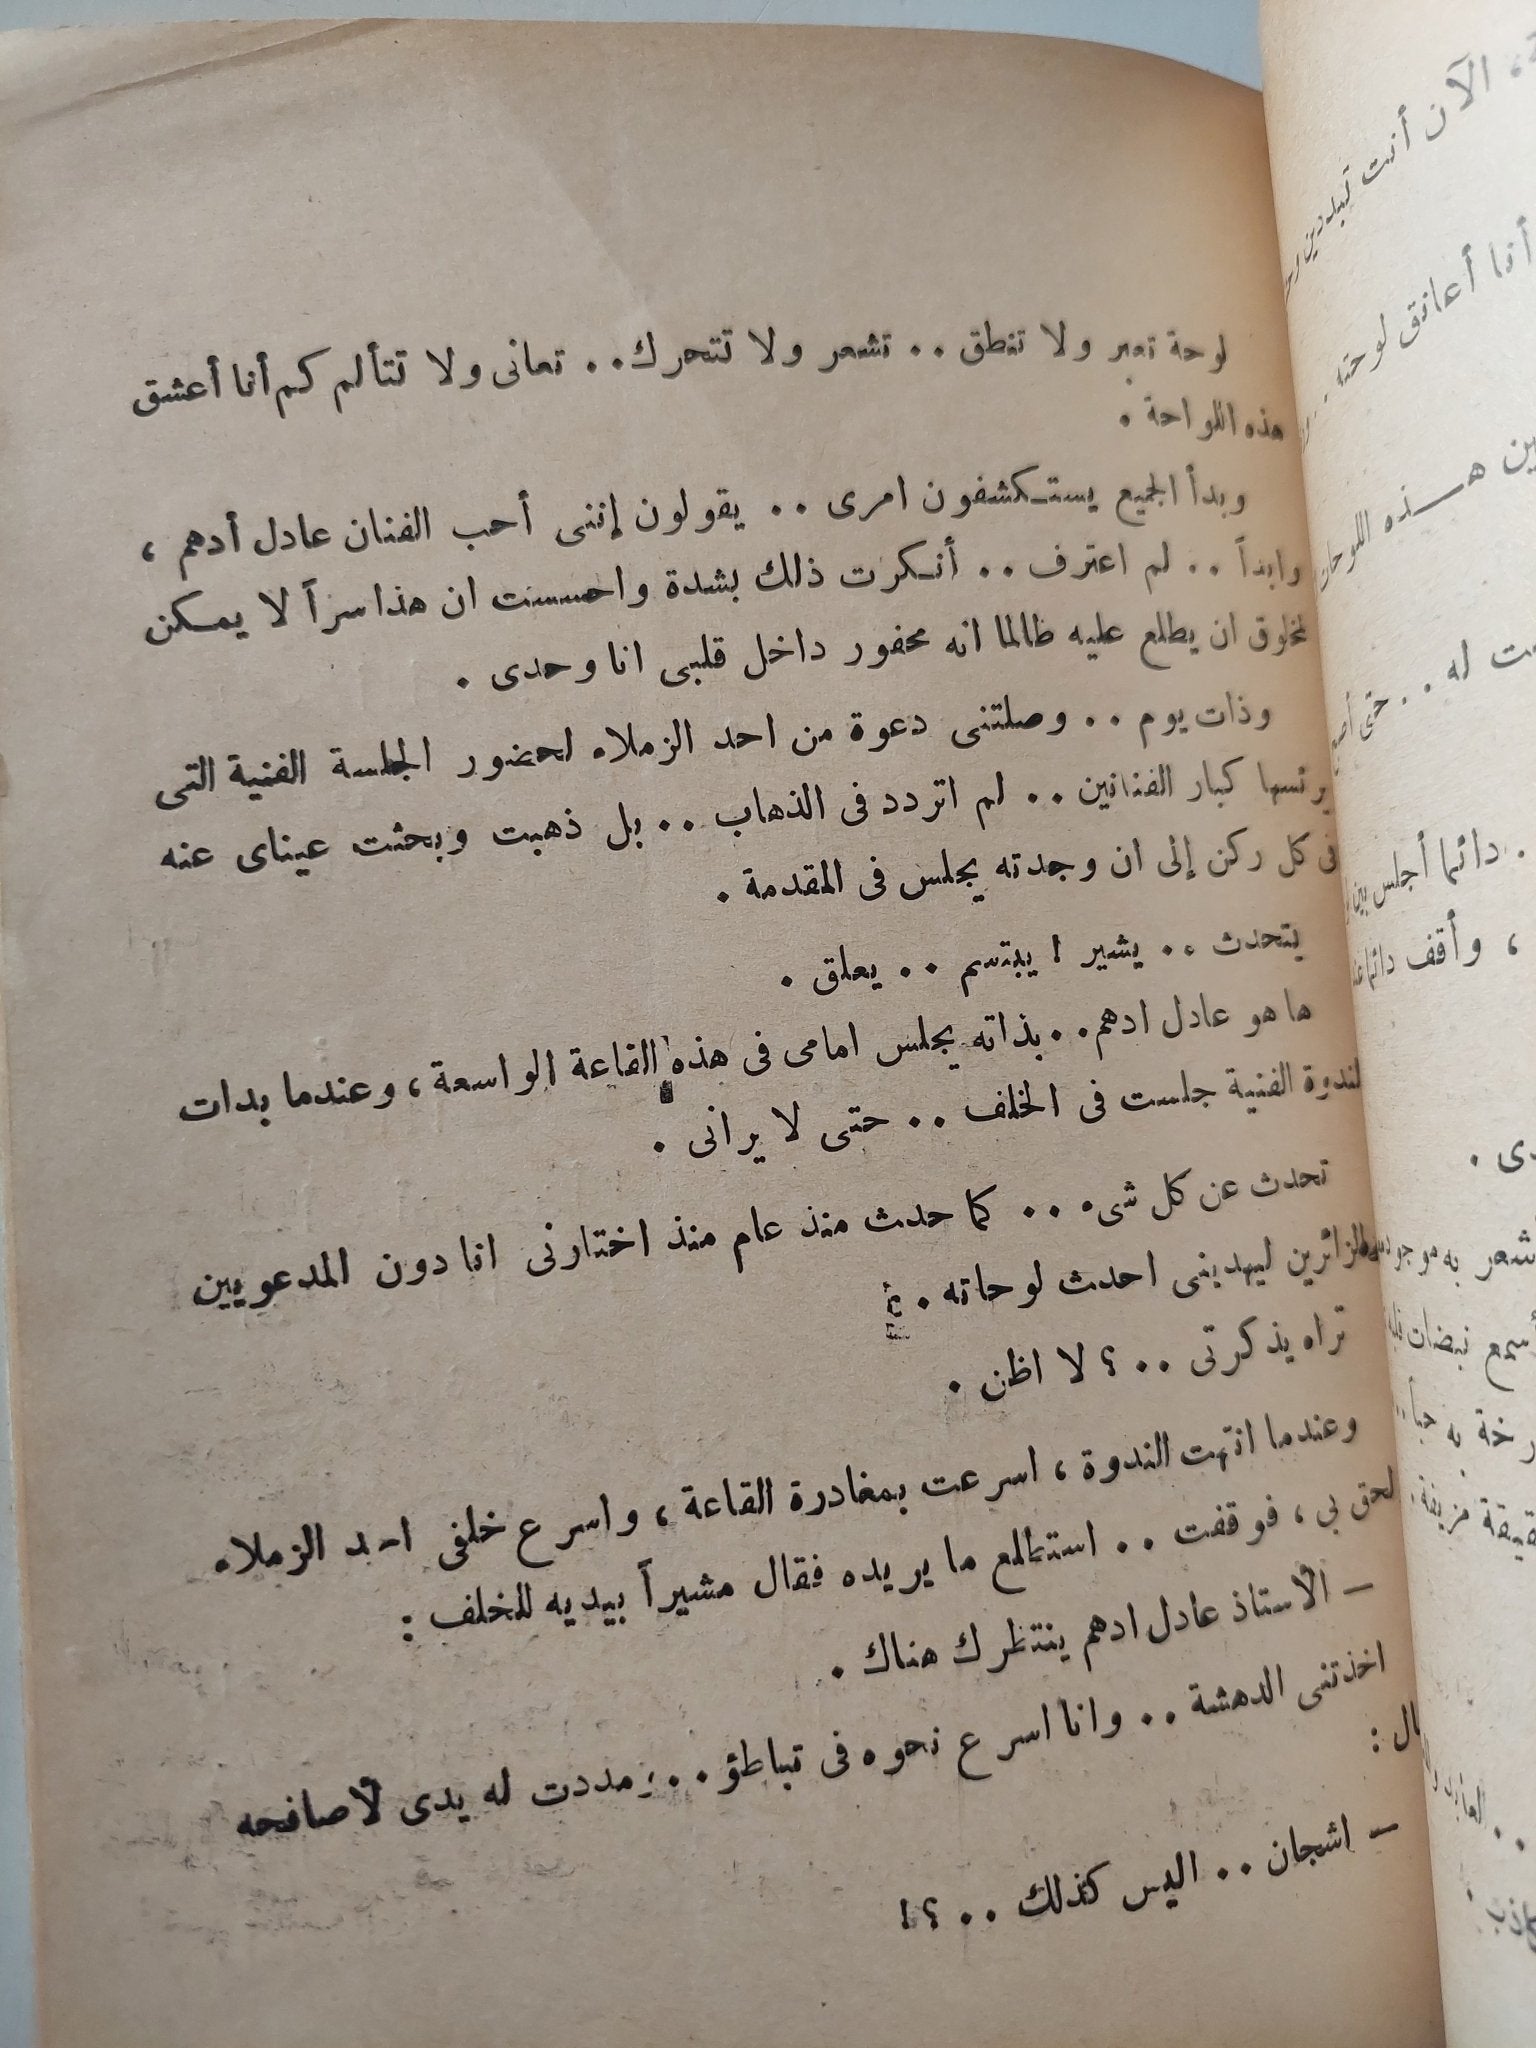 لوحة تعبر ولا تنطق .. تشعر ولا تتحرك .. تعانى ولا تتألم كم أنا أعشق
هذه اللواحة .
وبدأ الجميع يستكشفون امرى .. يقولون إننى أحب الفنان عادل أدهم ،
وابداً .. لم اعترف .. أنكرت ذلك بشدة واحسست ان هذا سراً لا يمكن
لمخلوق ان يطلع عليه طالما انه محفور داخل قلبى انا وحدى .
وذات يوم .. وصلتنى دعوة من احد الزملاء لحضور الجلسة الفنية التى
يرئسها كبار الفنانين .. لم اتردد فى الذهاب .. بل ذهبت وبحثت عيناى عنه
فى كل ركن إلى ان وجدته يجلس فى المقدمة .
يتحدث .. يشير ! يبتسم .. يعلق .
ها هو عادل ادهم .. بذاته يجلس امامى فى هذه القاعة الواسعة ، وعندما بدات
لندوة الفنية جلست فى الخلف .. حتى لا يرانى .
تحدث عن كل شىء .. كما حدث منذ عام منذ اختارنى انا دون المدعويين
الزائرين ليهدينى احدث لوحاته .
تراه يذكرتى .. ؟ لا اظن .
وعندما انتهت الندوة ، اسرعت بمغادرة القاعة ، واسرع خلفى احد الزملاء
لحق بى ، فوقفت .. استطلع ما يريده فقال مشيراً بيديه للخلف :
– الأستاذ عادل ادهم ينتظرك هناك .
اخذتنى الدهشة .. وانا اسرع نحوه فى تباطؤ .. مددت له يدى لأصافحه
ال :
– اشجان .. اليس كذلك .. ؟!
، الآن أنت تبددين
أنا أعانق لوحته ..
ين هذه اللوحات
ت له .. حتى
. دائما أجلس بين
، وأقف دائما
دى .
شعر به موجود
أسمع نبضات
رخة به حباً ..
قيقة مزيفة .